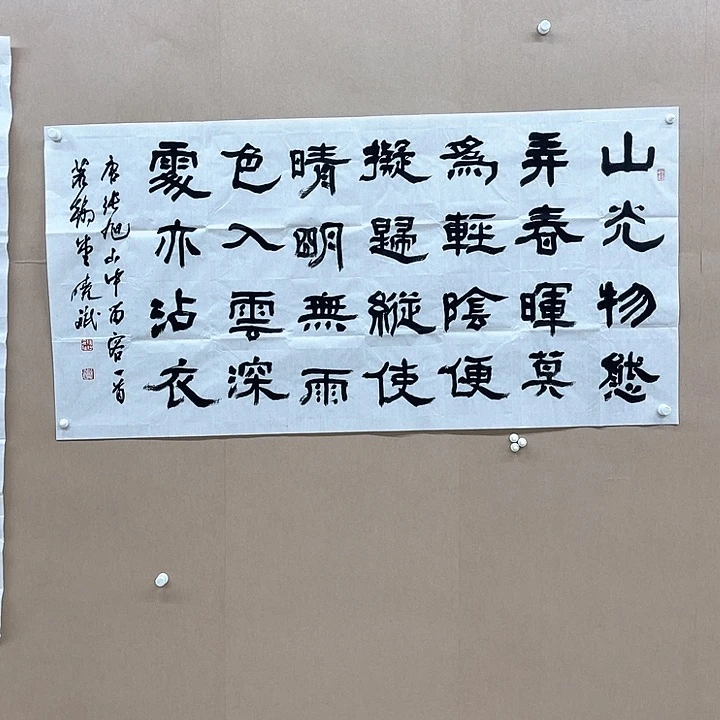 山光物態
弄春暉莫
爲輕陰便
擬歸縱使
晴明無雨
色入雲深
處亦沾衣
唐张旭山中留客一首
翰堂